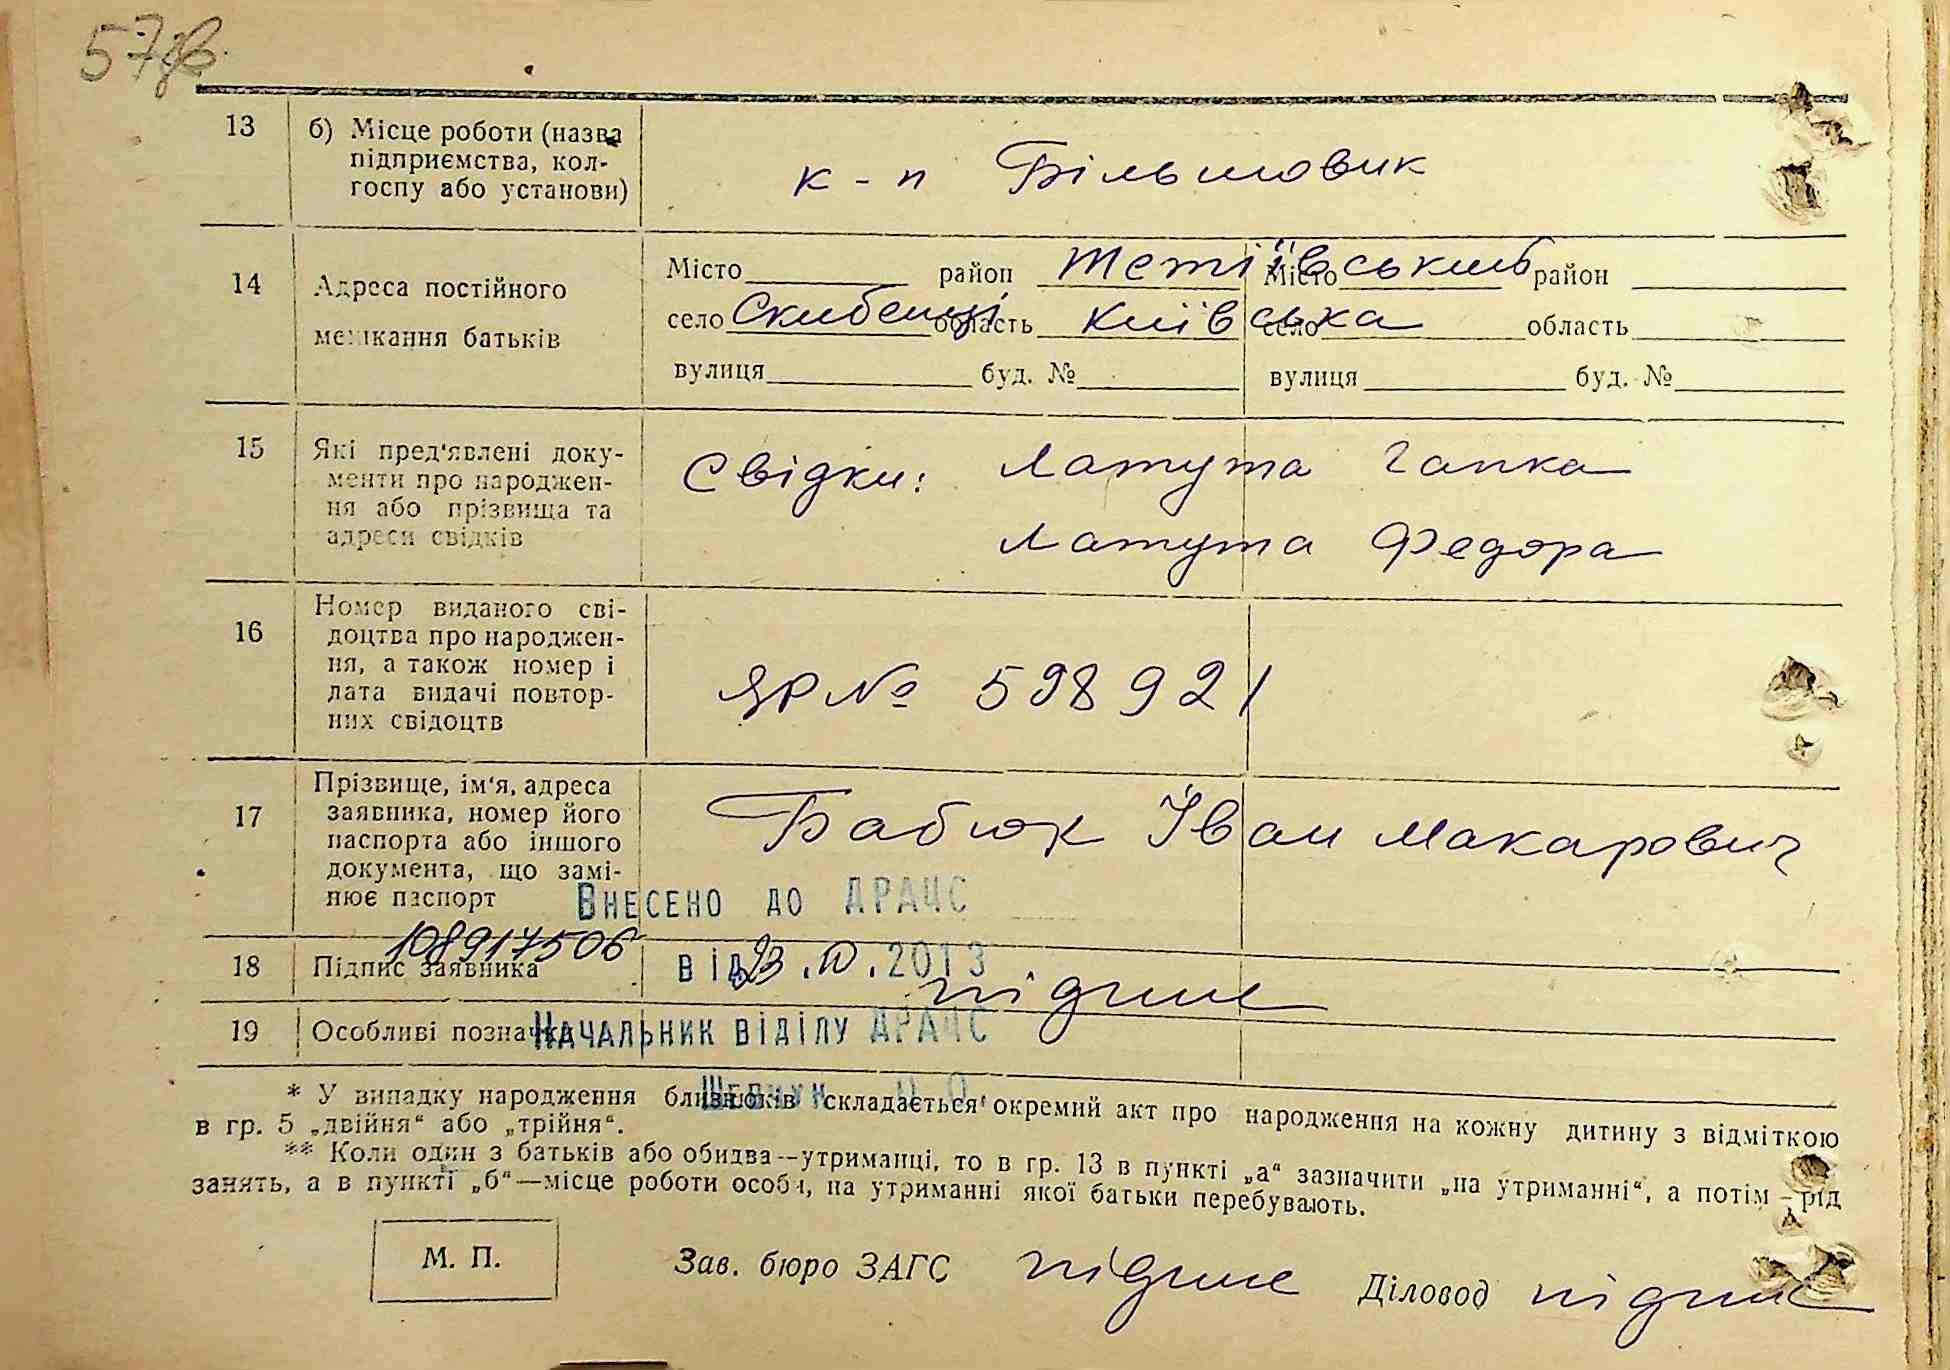 57зв.
13 б) Місце роботи (назва
підприємства, кол-
госпу або установи)
к-п Більшовик
14 Адреса постійного
мешкання батьків
Місто район Тетіївський Місто район
село Скибенці область Київська село область
вулиця буд. № вулиця буд. №
15 Які пред'явлені доку-
менти про народжен-
ня або прізвища та
адреси свідків
Свідки: Латута Гапка
Латута Федора
16 Номер виданого сві-
доцтва про народжен-
ня, а також номер і
дата видачі повтор-
них свідоцтв
ЯР № 598921
17 Прізвище, ім'я, адреса
заявника, номер його
паспорта або іншого
документа, що замі-
нює паспорт
Бабюк Іван Макарович
Внесено до ДРАЦС
108917506
18 Підпис заявника
від 23.10.2013
підпис
19 Особливі позначки
Начальник відділу ДРАЦС
* У випадку народження близнюків складається окремий акт про народження на кожну дитину з відміткою
в гр. 5 „двійня“ або „трійня“.
** Коли один з батьків або обидва—утриманці, то в гр. 13 в пункті „а“ зазначити „на утриманні“, а потім — рід
занять, а в пункті „б“—місце роботи особи, на утриманні якої батьки перебувають.
М. П. Зав. бюро ЗАГС підпис Діловод підпис